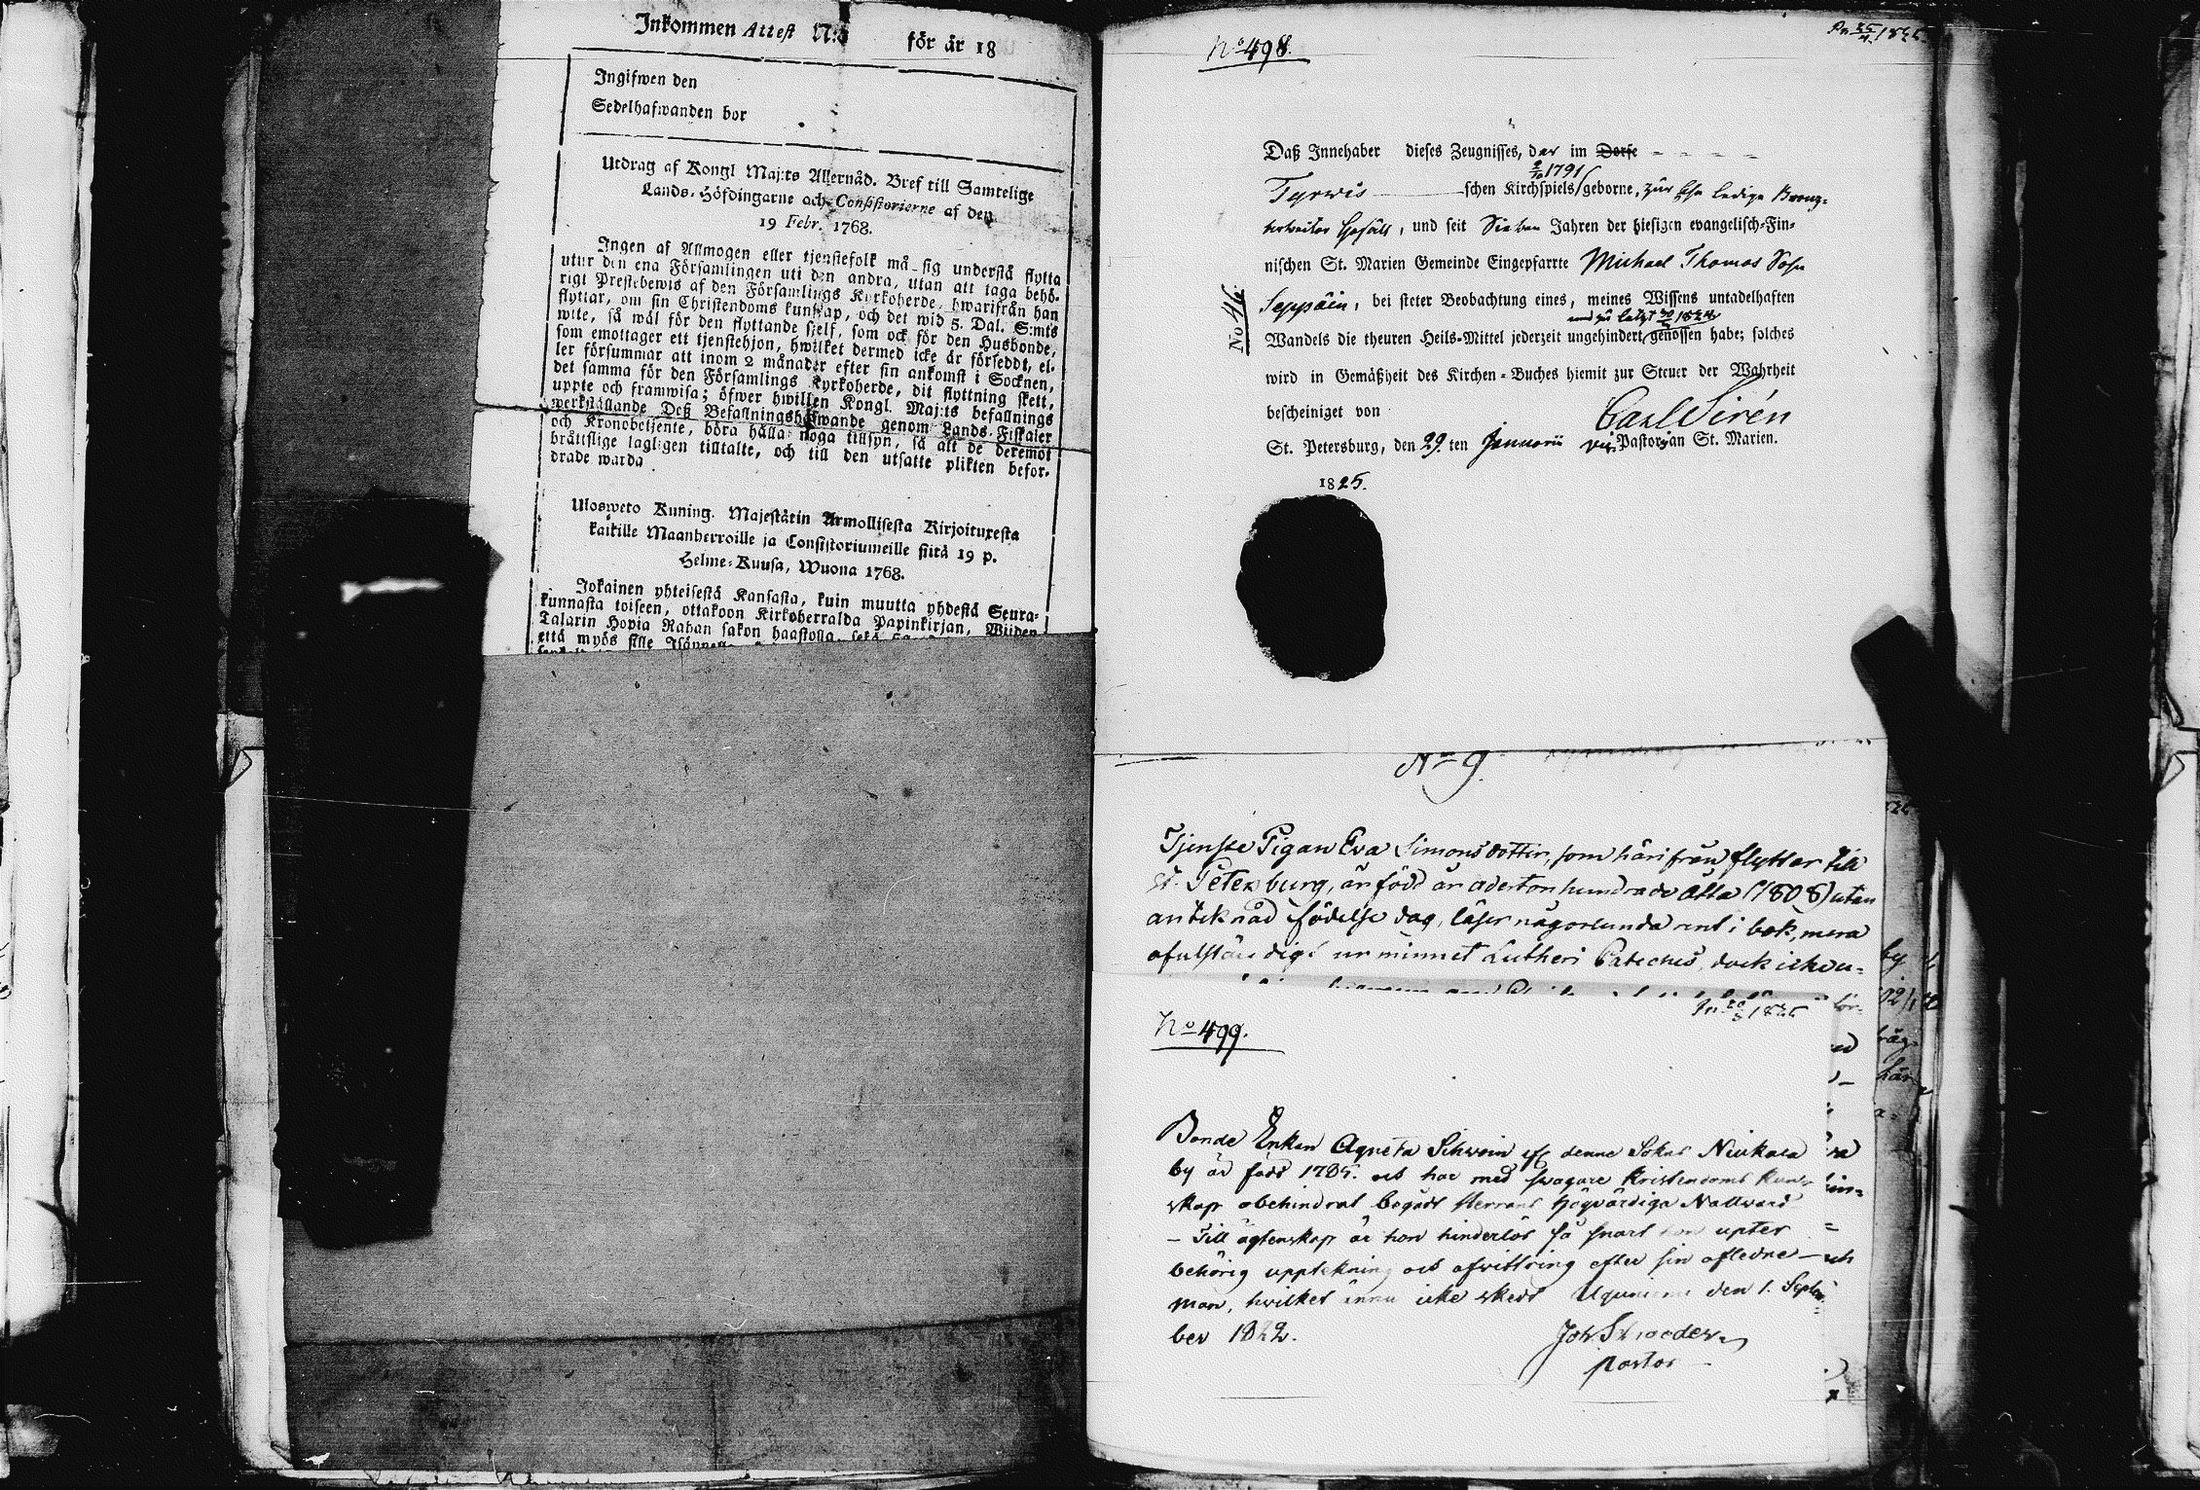 Inkommen Attest N:o för år 18
Ingifwen den
Sedelhafwanden bor
Utdrag af Kongl Maj:ts Allernåd. Bref till Samtelige
Lands-Höfdingarne och Consistorierne af den
19 Febr. 1768.
Ingen af Allmogen eller tjenstefolk må sig understå flytta
utur den ena Församlingen uti den andra, utan att taga behö-
rigt Prestebewis af den Församlings Kyrkoherde, hwarifrån han
flyttar, om sin Christendoms kunskap, och det wid 5. Dal. S:mts
wite, så wäl för den flyttande sjelf, som ock för den Husbonde,
som emottager ett tjenstehjon, hwilket dermed icke är försedt, el-
ler försummar att inom 2 månader efter sin ankomst i Socknen,
det samma för den Församlings Kyrkoherde, dit flyttning skett,
uppte och framwisa; öfwer hwilken Kongl. Maj:ts befallnings
werkställande Deß Befallningshafwande genom Lands-Fiskaler
och Kronobetjente, böra hålla noga tillsyn, så att de deremot
bråttslige lagligen tilltalte, och till den utsatte plikten befor-
drade warda
Ulosweto Kuning. Majestätin Armollisesta Kirjoituxesta
kaikille Maanherroille ja Consistoriumeille siitä 19 p.
Helme-Kuusa, Wuona 1768.
Jokainen yhteisestä Kansasta, kuin muutta yhdestä Seura-
kunnasta toiseen, ottakoon Kirkoherralda Papinkirjan, Wiiden
Talarin Hopia Rahan sakon haastolla, sekä
että myös sille Isännelle
No 498.
Daß Innehaber dieses Zeugnisses, der im Dorfe
1791
Tyrwis schen Kirchspiels geborne, zur Ehe ledige
Gesell, und seit Sieben Jahren der hiesigen evangelisch-Fin-
nischen St. Marien Gemeinde Eingepfarrte Michael Thomas Sohn
Seppäin, bei steter Beobachtung eines, meines Wissens untadelhaften
und zu letzt
No 46.
Wandels die theuren Heils-Mittel jederzeit ungehindert genossen habe; solches
wird in Gemäßheit des Kirchen-Buches hiemit zur Steuer der Wahrheit
bescheiniget von Carl Sirén
St. Petersburg, den 29. ten Januarii Pastor an St. Marien.
1825.
No 9.
Tjenste Pigan Eva Simonsdotter, som härifrån flyttar till
St. Petersburg, är född år adertonhundrade åtta (1808) utan
antecknad födelse dag, läser någorlunda rent i bok, mera
ofulständigt ur minnet Lutheri Cateches, dock icke u=
No 499.
Bonde Enkan Agneta Sihvoin af denne Sokns Niukala
by är född 1785. och har med svagare kristendoms kun-
skap obehindrat begådt Herrans Högvärdiga Nattvard
– Till ägtenskap är hon hinderlös så snart hon upter
behörig uppteckning och afvittring efter sin afledne
man, hvilket ännu icke skedt Uguniemi den 1. Septem-
ber 1822.
Joh. Strooder
pastor